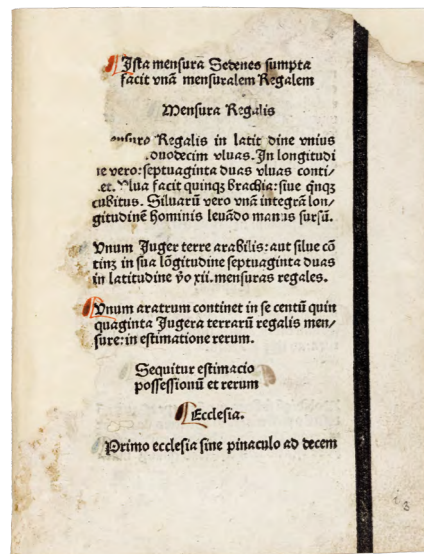 Ista mensurā Sedenes sumpta
facit vnā mensuralem Regalem
Mensura Regalis
Regalis in latit dine vnius
duodecim vluas. In longitudi
vero: septuaginta duas vluas conti⸗
Vlua facit quinqꝫ brachia: siue qͥnqꝫ
cubitus. Siluarū vero vnā integrā lon⸗
gitudinē hominis leuādo manus sursū.
Vnum Juger terre arabilis: aut silue cō
tinꝫ in sua lōgitudine septuaginta duas
in latitudine v̄o xii. mensuras regales.
Vnum aratrum continet in se centū quin
quaginta Jugera terrarū regalis men⸗
sure: in estimatione rerum.
Sequitur estimacio
possessionū et rerum
Ecclesia.
Primo ecclesia sine pinaculo ad decem